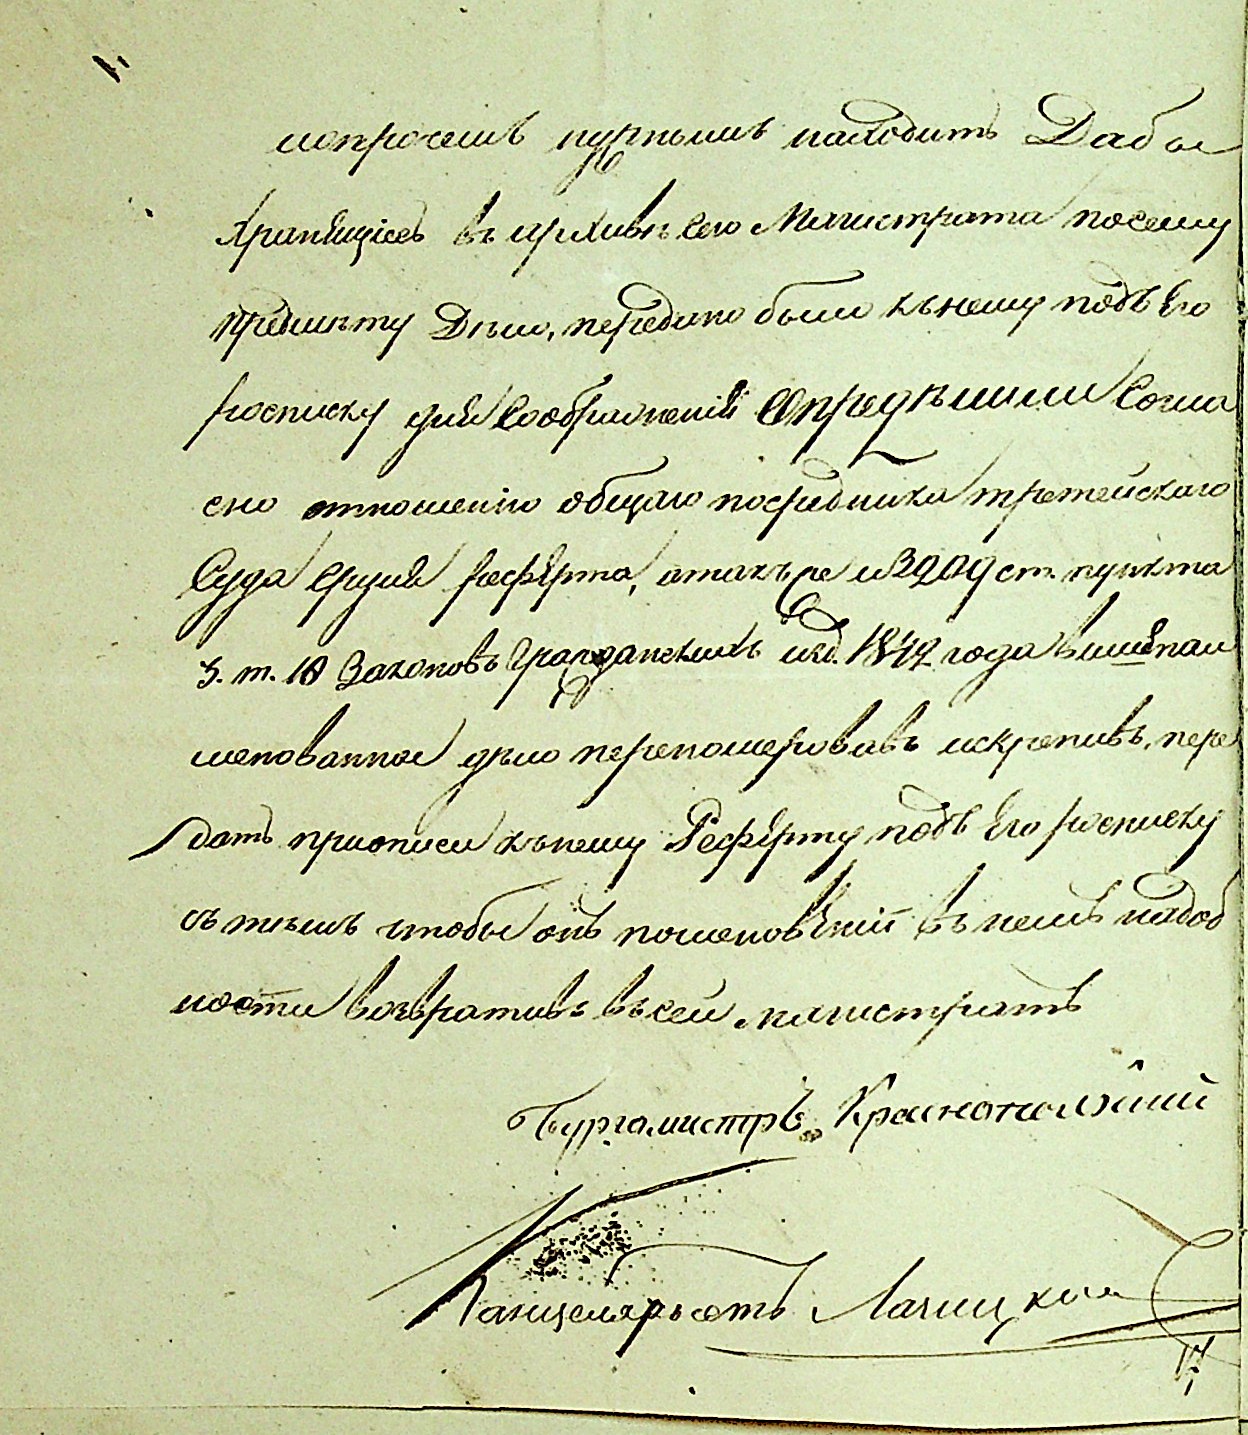 нопрочемъ нужнымъ находитъ Дабы
хранящіеся въ архивѣ сего Магистрата посему
предмѣту Дѣло, передано было кънему подъ Его
росписку для соображеній Опредѣлили Согла
сно отношенію общаго посредника третейскаго
Суда Ерзия Рефѣрта, атакъ же и 3909 ст. пункта
3. т. 10 Законовъ Гражданскихъ изд. 1842 года вышепаи
менованное дѣло перепомеровавъ искрепивъ, пере
дать приописи кънему Рефѣрту подъ Его росписку
съ тѣмъ чтобы онъ поменовѣній въ немъ надоб
ности возвративъ въсей магистратъ
Бургомистръ Краснопольскій
Канцеляръ
17